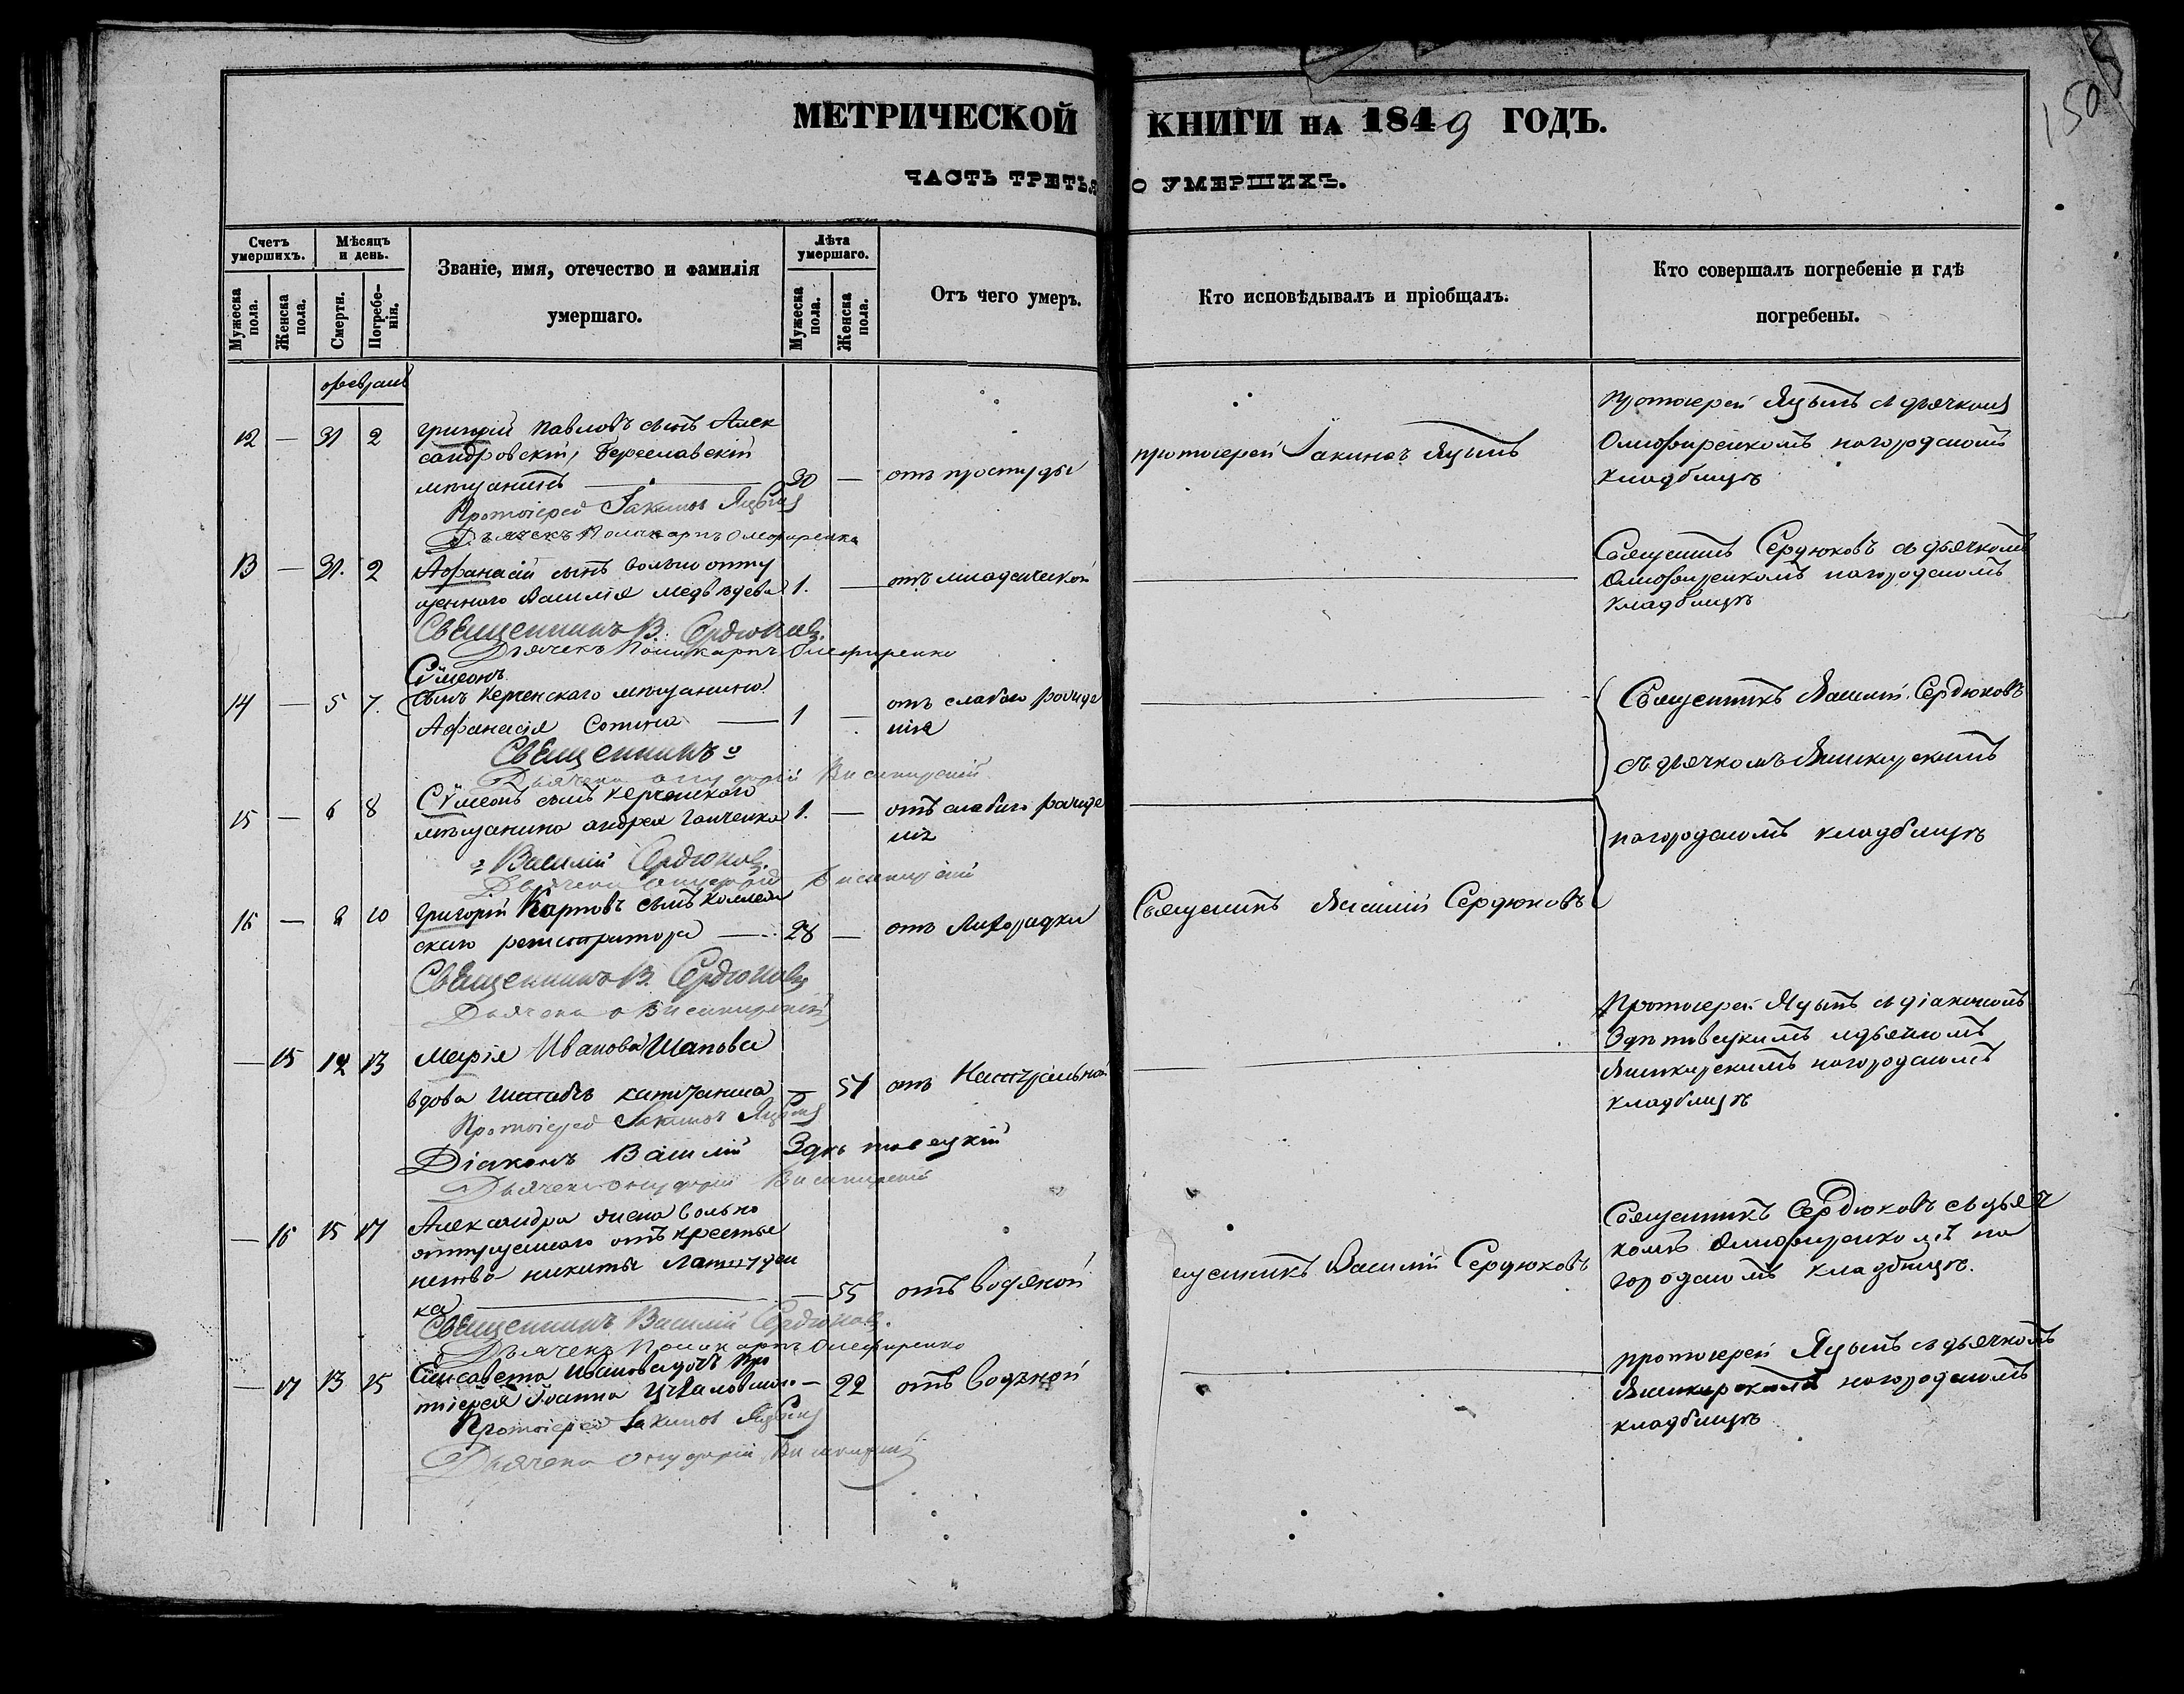 150
МЕТРИЧЕСКОЙ КНИГИ НА 1849 ГОДЪ.
ЧАСТЬ ТРЕТЬЯ О УМЕРШИХЪ.
Счетъ умершихъ.
Мѣсяцъ и день.
Званіе, имя, отечество и фамилія умершаго.
Лѣта умершаго.
Отъ чего умеръ.
Кто исповѣдывалъ и пріобщалъ.
Кто совершалъ погребеніе и гдѣ погребены.
Мужеска пола.
Женска пола.
Смерти.
Погребенія.
Мужеска пола.
Женска пола.
февраль
12 — 31 2
Григорій Павловъ сынъ Алек
сандровскій, Береславскій
мѣщанинъ — 30 — отъ простуды
протоіерей Іакинөъ Яцынъ
протоіерей Яцынъ съ дьячкомъ
Олефиренкомъ на городскомъ
кладбищѣ
Протоіерей Іакинөъ
Дьячекъ Поликарпъ Олефиренко
13 — 31. 2
Афанасій сынъ вольноотпу
щеннаго Василія Медвѣдева 1. — отъ младенческой
Священникъ Сердюковъ съ дьячкомъ
Олефиренкомъ на городскомъ
кладбищѣ
Священникъ В. Сердюковъ.
Дьячекъ Поликарпъ Олефиренко
14 — 5 7.
Сѵмеонъ
сынъ Керченскаго мѣщанина
Афанасія Сотина — 1 — отъ слабаго рожде
нія
Священникъ Василій Сердюковъ
съ дьячкомъ
на городскомъ кладбищѣ
Священникъ
Дьячекъ Онуфрій
15 — 6 8
Сѵмеонъ сынъ Керченскаго
мѣщанина Андрея Ганченка 1. — отъ слабаго рожде
нія
Василій Сердюковъ.
Дьячекъ Онуфрій
16 — 8 10
Григорій Карповъ сынъ Коллеж
скаго регистратора — 28 — отъ Лихорадки
Священникъ Василій Сердюковъ
Священникъ В. Сердюковъ
Дьячекъ О
— 15 12 13
Марія Иванова
вдова Штабсъ капитанша — 51 отъ
Протоіерей Яцынъ съ діакономъ
и дьячкомъ
на городскомъ
кладбищѣ
Протоіерей Іакинөъ
Діаконъ Василій
Дьячекъ Онуфрій
— 16 15 17
Александра жена вольно
отпущеннаго отъ крестья
нства Никиты
ка — — 55 отъ водяной
Священникъ Василій Сердюковъ
Священникъ Сердюковъ съ дьяч
комъ Олефиренкомъ на
городскомъ кладбищѣ.
Священникъ Василій Сердюковъ.
Дьячекъ Поликарпъ Олефиренко
— 17 13 15
Елисавета Иванова дочь про
тоіерея Іоанна — 22 отъ водяной
протоіерей Яцынъ съ дьячкомъ
на городскомъ
кладбищѣ
Протоіерей Іакинөъ
Дьячекъ Онуфрій